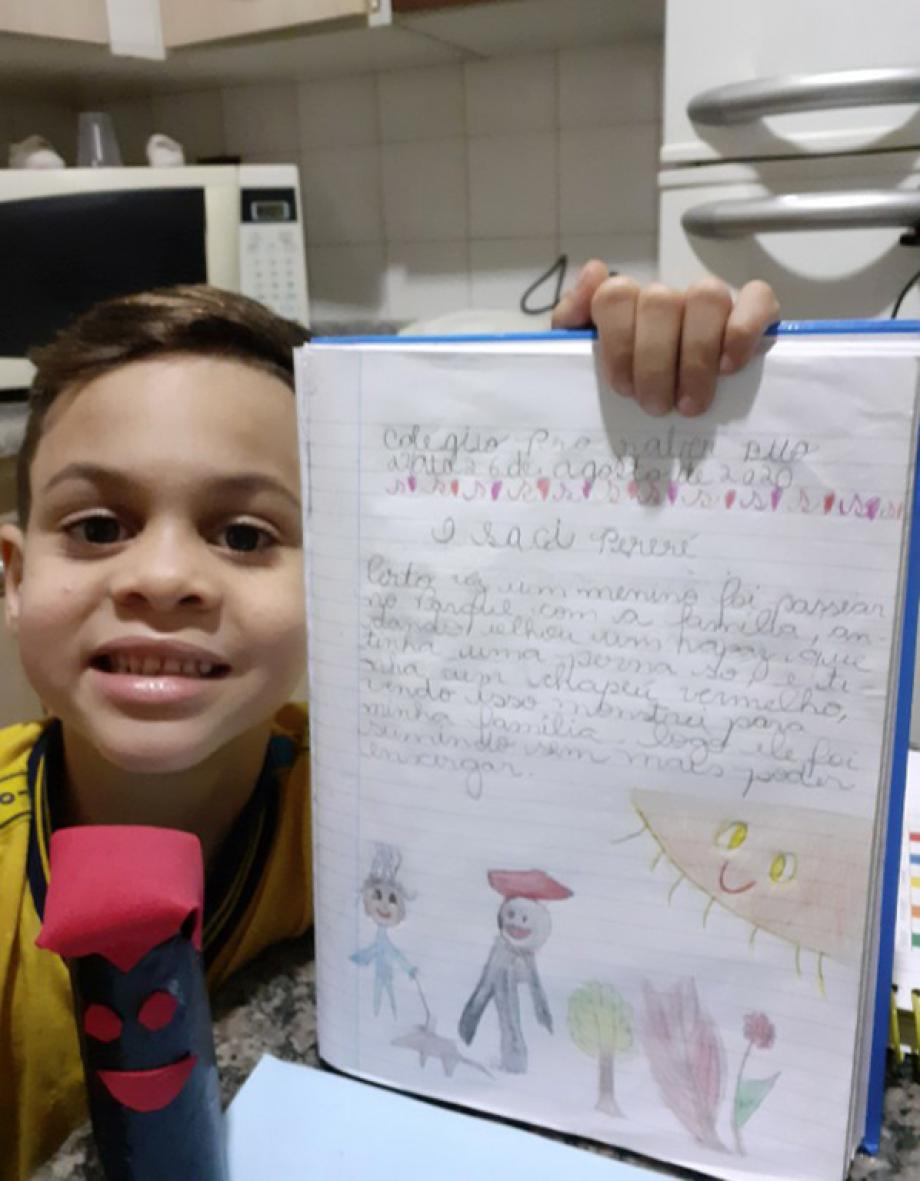 Colégio Pro
26 de agosto de 2020
O Saci Pererê
Certa vez um menino foi passear
no Parque com a família, an-
dando olhou um rapaz que
tinha uma perna só e ti-
nha um chapéu vermelho,
vindo isso monstrei para
minha família logo ele foi
sumindo sem mais poder
enxergar.